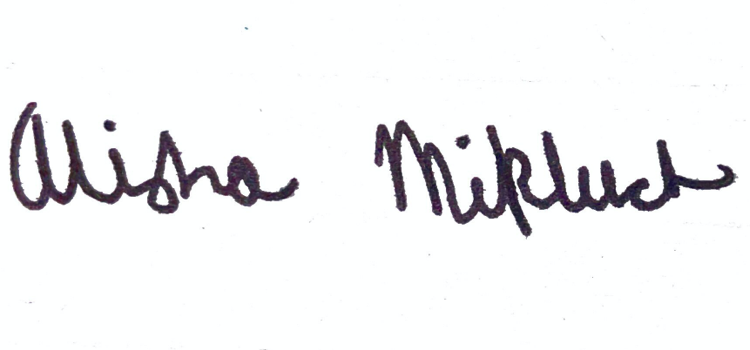 Alisha Mikluch